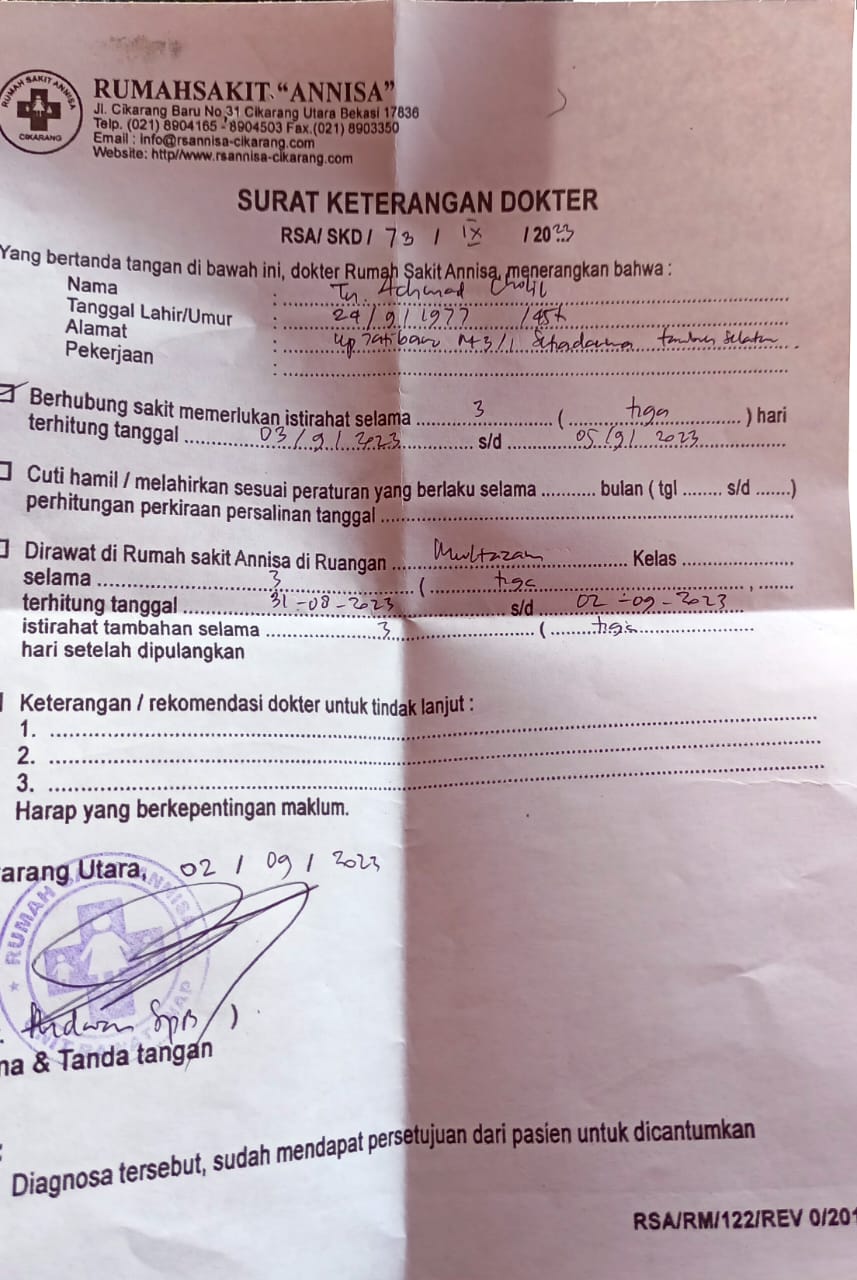 RUMAH SAKIT ANNISA
CIKARANG
RUMAHSAKIT "ANNISA"
Jl. Cikarang Baru No 31 Cikarang Utara Bekasi 17836
Telp. (021) 8904165 - 8904503 Fax.(021) 8903350
Email : info@rsannisa-cikarang.com
Website: http//www.rsannisa-cikarang.com
SURAT KETERANGAN DOKTER
RSA/ SKD / 73 / IX / 2023
Yang bertanda tangan di bawah ini, dokter Rumah Sakit Annisa, menerangkan bahwa :
Nama : Tn. Achmad Cholil
Tanggal Lahir/Umur : 24/9/1977 /45t
Alamat : Kp Jatibaru Setiadarma tambun Selatan
Pekerjaan :
Berhubung sakit memerlukan istirahat selama 3 ( tiga ) hari
terhitung tanggal 03/9/2023 s/d 05/9/2023
Cuti hamil / melahirkan sesuai peraturan yang berlaku selama ........... bulan ( tgl ........ s/d .......)
perhitungan perkiraan persalinan tanggal
Dirawat di Rumah sakit Annisa di Ruangan Multazam Kelas
selama 3 ( tiga ,
terhitung tanggal 31-08-2023 s/d 02-09-2023
istirahat tambahan selama 3 ( tiga
hari setelah dipulangkan
Keterangan / rekomendasi dokter untuk tindak lanjut :
1.
2.
3.
Harap yang berkepentingan maklum.
arang Utara, 02 / 09 / 2023
RUMAH SAKIT ANNISA
SpB )
na & Tanda tangan
Diagnosa tersebut, sudah mendapat persetujuan dari pasien untuk dicantumkan
RSA/RM/122/REV 0/201